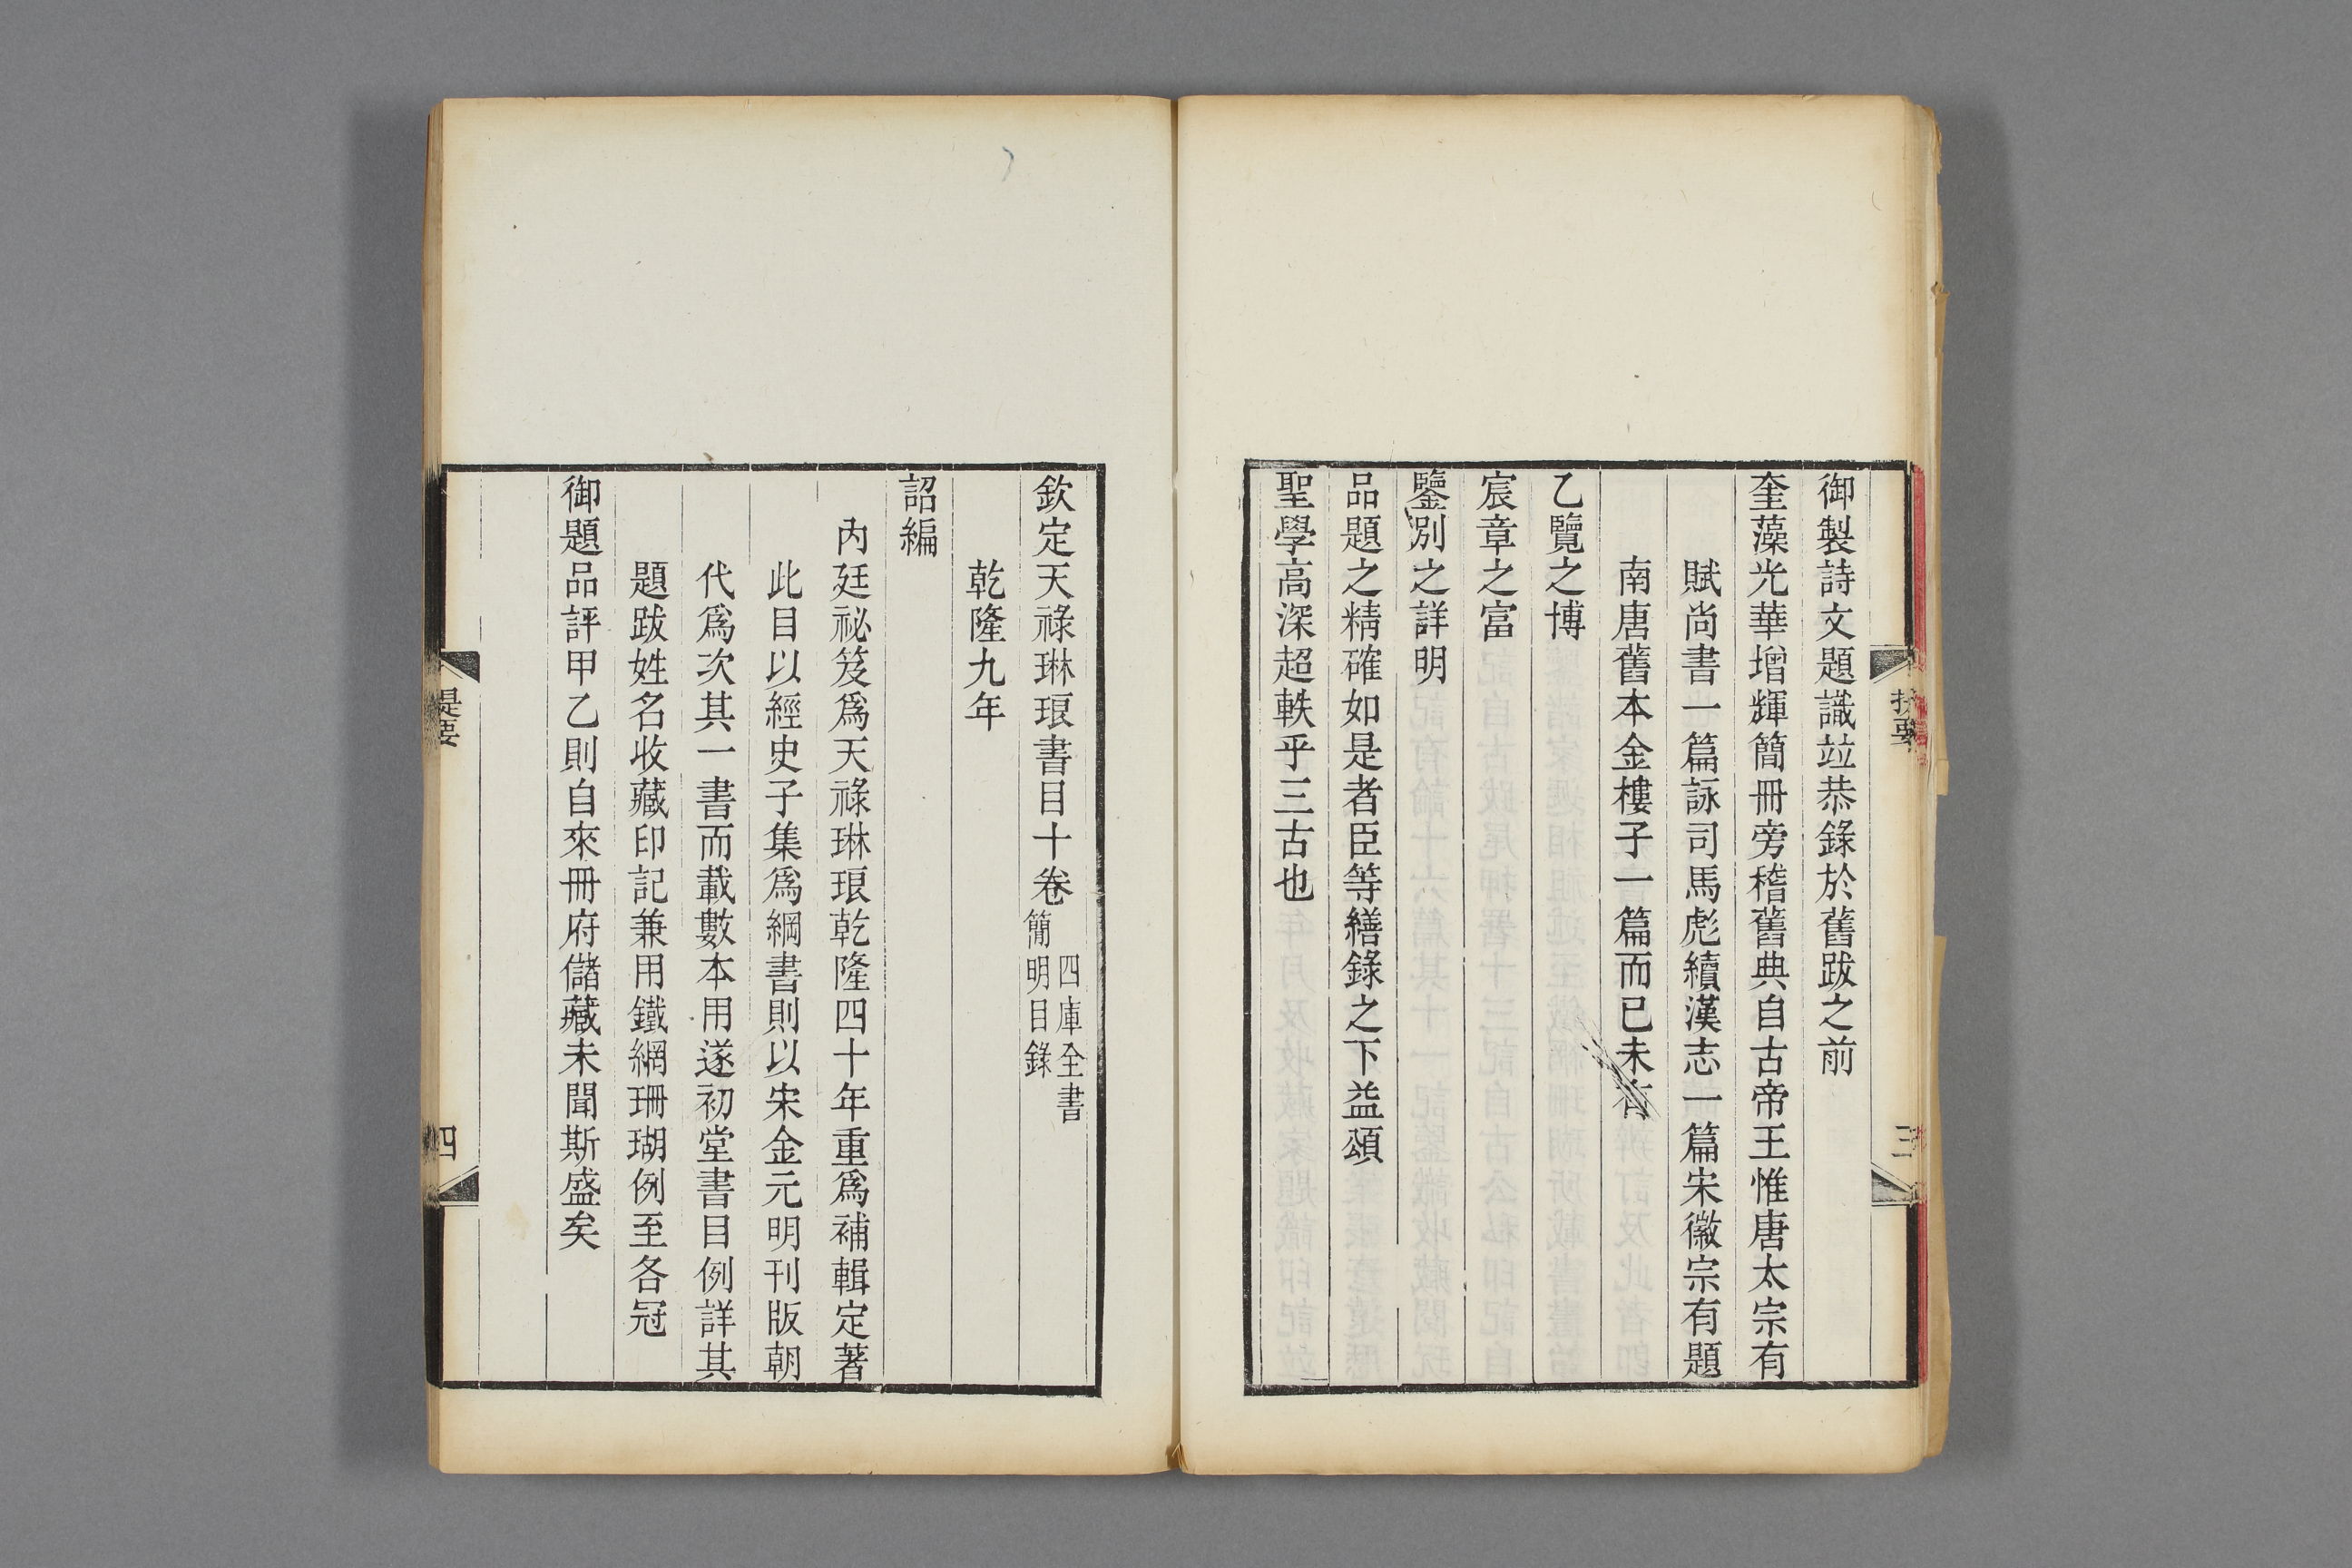 御製詩文題識竝恭錄於舊跋之前
奎藻光華增輝簡冊旁稽舊典自古帝王惟唐太宗有
賦尚書一篇詠司馬彪續漢志一篇宋徽宗有題
南唐舊本金樓子一篇而已未有
乙覽之博
宸章之富
鑒別之詳明
品題之精確如是者臣等繕錄之下益頌
聖學高深超軼乎三古也
提要
三
欽定天祿琳琅書目十卷
四庫全書
簡明目錄
乾隆九年
詔編
內廷祕笈爲天祿琳琅乾隆四十年重爲補輯定著
此目以經史子集爲綱書則以宋金元明刊版朝
代爲次其一書而載數本用遂初堂書目例詳其
題跋姓名收藏印記兼用鐵網珊瑚例至各冠
御題品評甲乙則自來冊府儲藏未聞斯盛矣
提要
四